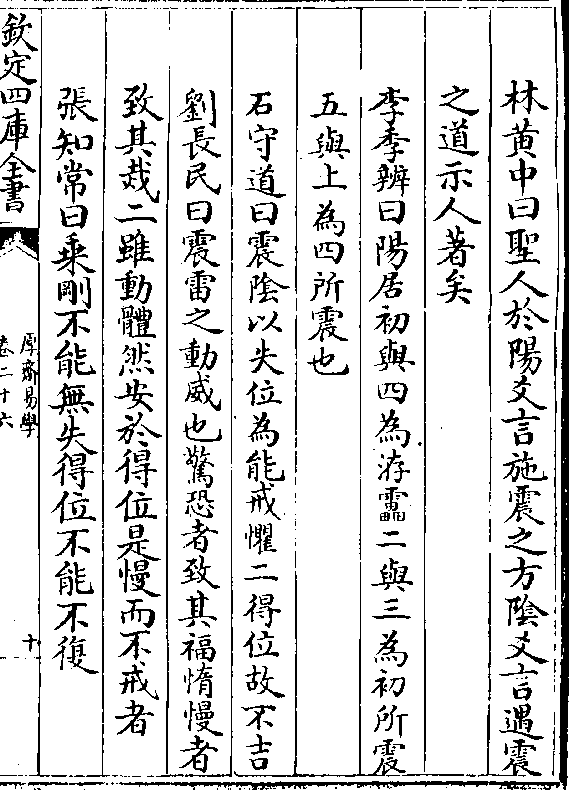 林黄中曰聖人於陽爻言施震之方陰爻言遇震
之道示人著矣
李季辨曰陽居初與四為洊靁二與三為初所震
五與上為四所震也
石守道曰震陰以失位為能戒懼二得位故不吉
劉長民曰震雷之動威也驚恐者致其福惰慢者
致其烖二雖動體然安於得位是慢而不戒者
張知常曰乗剛不能無失得位不能不復
欽定四庫全書
厚齋易學
卷二十六
十